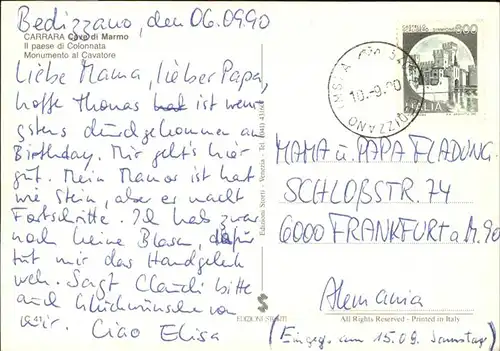 Bedizzano, den 06.09.90
CARRARA Cave di Marmo
Il paese di Colonnata
Monumento al Cavatore
Liebe Mama, lieber Papa,
hoffe Thomas hat ist wenig
stens durchgekommen am
Birthday. Mir geht's hier
gut. Mein Marmor ist hart
wie Stein, aber er macht
Fortschritte. Ich hab zwar
noch keine Blasen, dafür
tut mir das Handgelenk
weh. Sagt Claudi bitte
auch Glückwünsche von
mir. Ciao Elisa
C. 41
EDIZIONI STORTI
Edizioni Storti - Venezia - Tel. (041)
10-9-90
BEDIZZANO
800
ITALIA
MAMA u. PAPA FLADUNG
SCHLOßSTR. 74
6000 FRANKFURT a. M. 90
Alemania
All Rights Reserved - Printed in Italy
(Eingeg. am 15.09. Samstag)